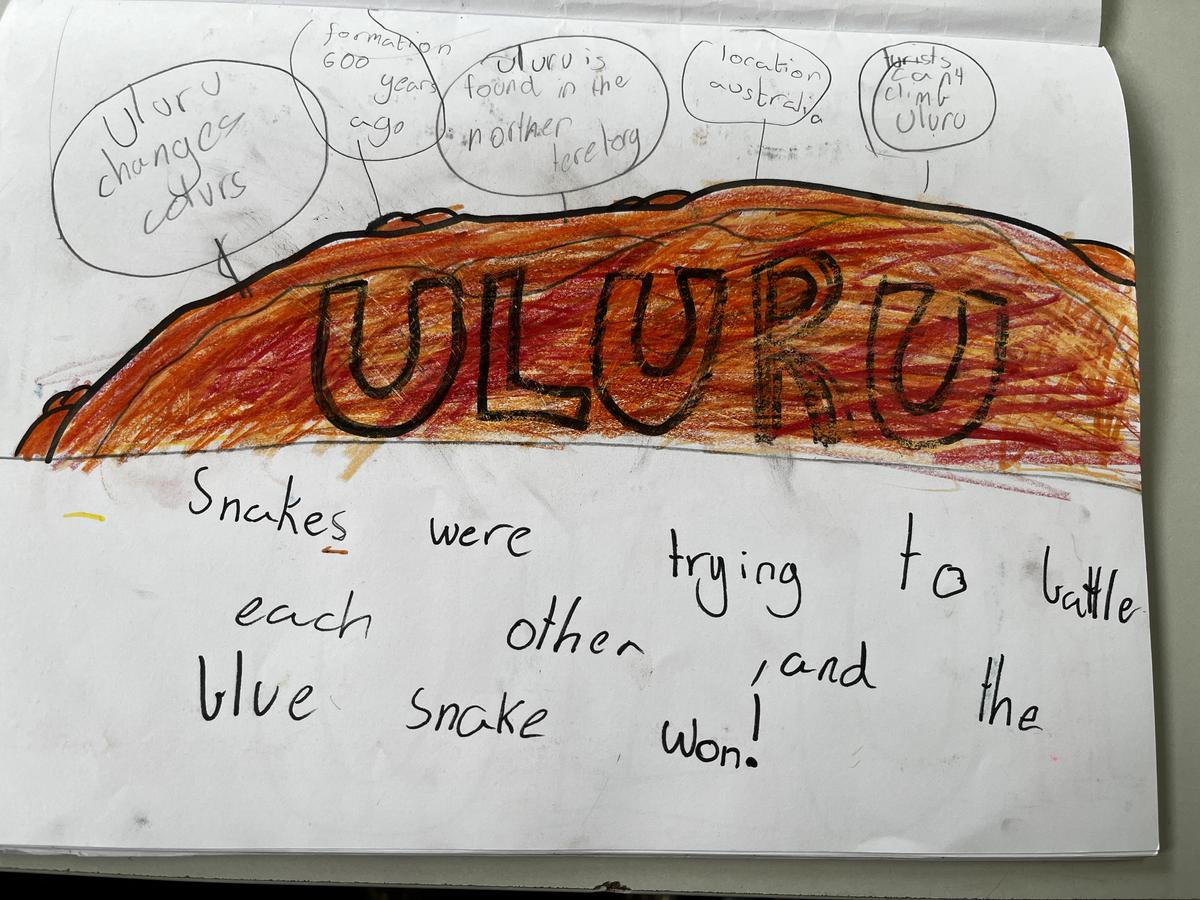 Uluru
changes
colurs
formation
600
years
ago
uluru is
found in the
norther
teretory
location
australia
turists
can4
climb
Uluru
ULURU
Snakes were trying to battle
each other, and the
blue snake won!